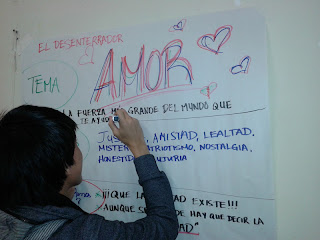 EL DESENTERRADOR
AMOR
TEMA
LA FUERZA MÁS GRANDE DEL MUNDO QUE
TE AYUD
JUS , AMISTAD, LEALTAD,
MISTER PATRIOTISMO, NOSTALGIA,
HONESTID UTURIA
¡¡¡QUE LA DAD EXISTE!!!
AUNQUE S DE HAY QUE DECIR LA
DAD"